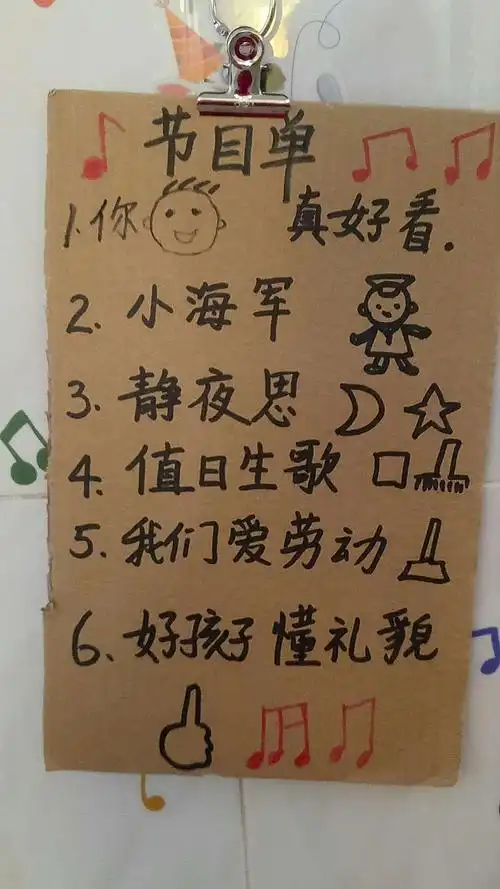 节目单
1.你 真好看.
2. 小海军
3. 静夜思
4. 值日生歌
5. 我们爱劳动
6、好孩子懂礼貌